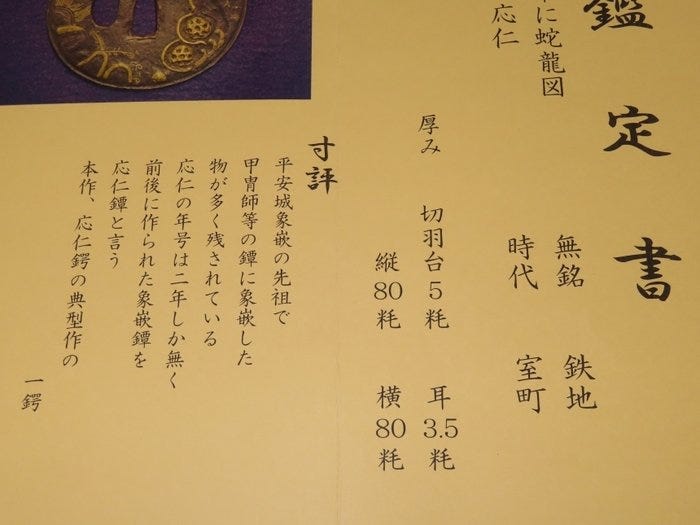 鑑定書
に蛇龍図
応仁
無銘 鉄地
時代 室町
厚み 切羽台5粍 耳3.5粍
縦80粍 横80粍
寸評
平安城象嵌の先祖で
甲冑師等の鐔に象嵌した
物が多く残されている
応仁の年号は二年しか無く
前後に作られた象嵌鐔を
応仁鐔と言う
本作、応仁鍔の典型作の
一鍔